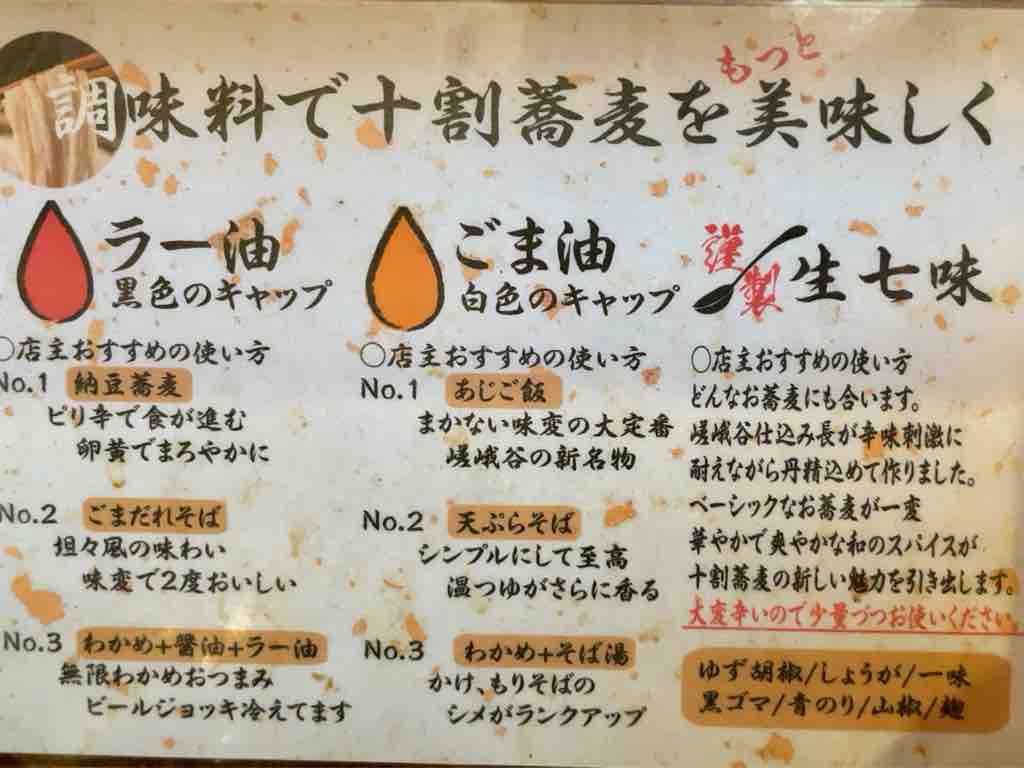 もっと
調味料で十割蕎麦を美味しく
ラー油
黒色のキャップ
○店主おすすめの使い方
No.1 納豆蕎麦
ピリ辛で食が進む
卵黄でまろやかに
No.2 ごまだれそば
坦々風の味わい
味変で2度おいしい
No.3 わかめ+醤油+ラー油
無限わかめおつまみ
ビールジョッキ冷えてます
ごま油
白色のキャップ
○店主おすすめの使い方
No.1 あじご飯
まかない味変の大定番
嵯峨谷の新名物
No.2 天ぷらそば
シンプルにして至高
温つゆがさらに香る
No.3 わかめ+そば湯
かけ、もりそばの
シメがランクアップ
謹製 生七味
○店主おすすめの使い方
どんなお蕎麦にも合います。
嵯峨谷仕込み長が辛味刺激に
耐えながら丹精込めて作りました。
ベーシックなお蕎麦が一変
華やかで爽やかな和のスパイスが
十割蕎麦の新しい魅力を引き出します。
大変辛いので少量づつお使いください。
ゆず胡椒/しょうが/一味
黒ゴマ/青のり/山椒/麹